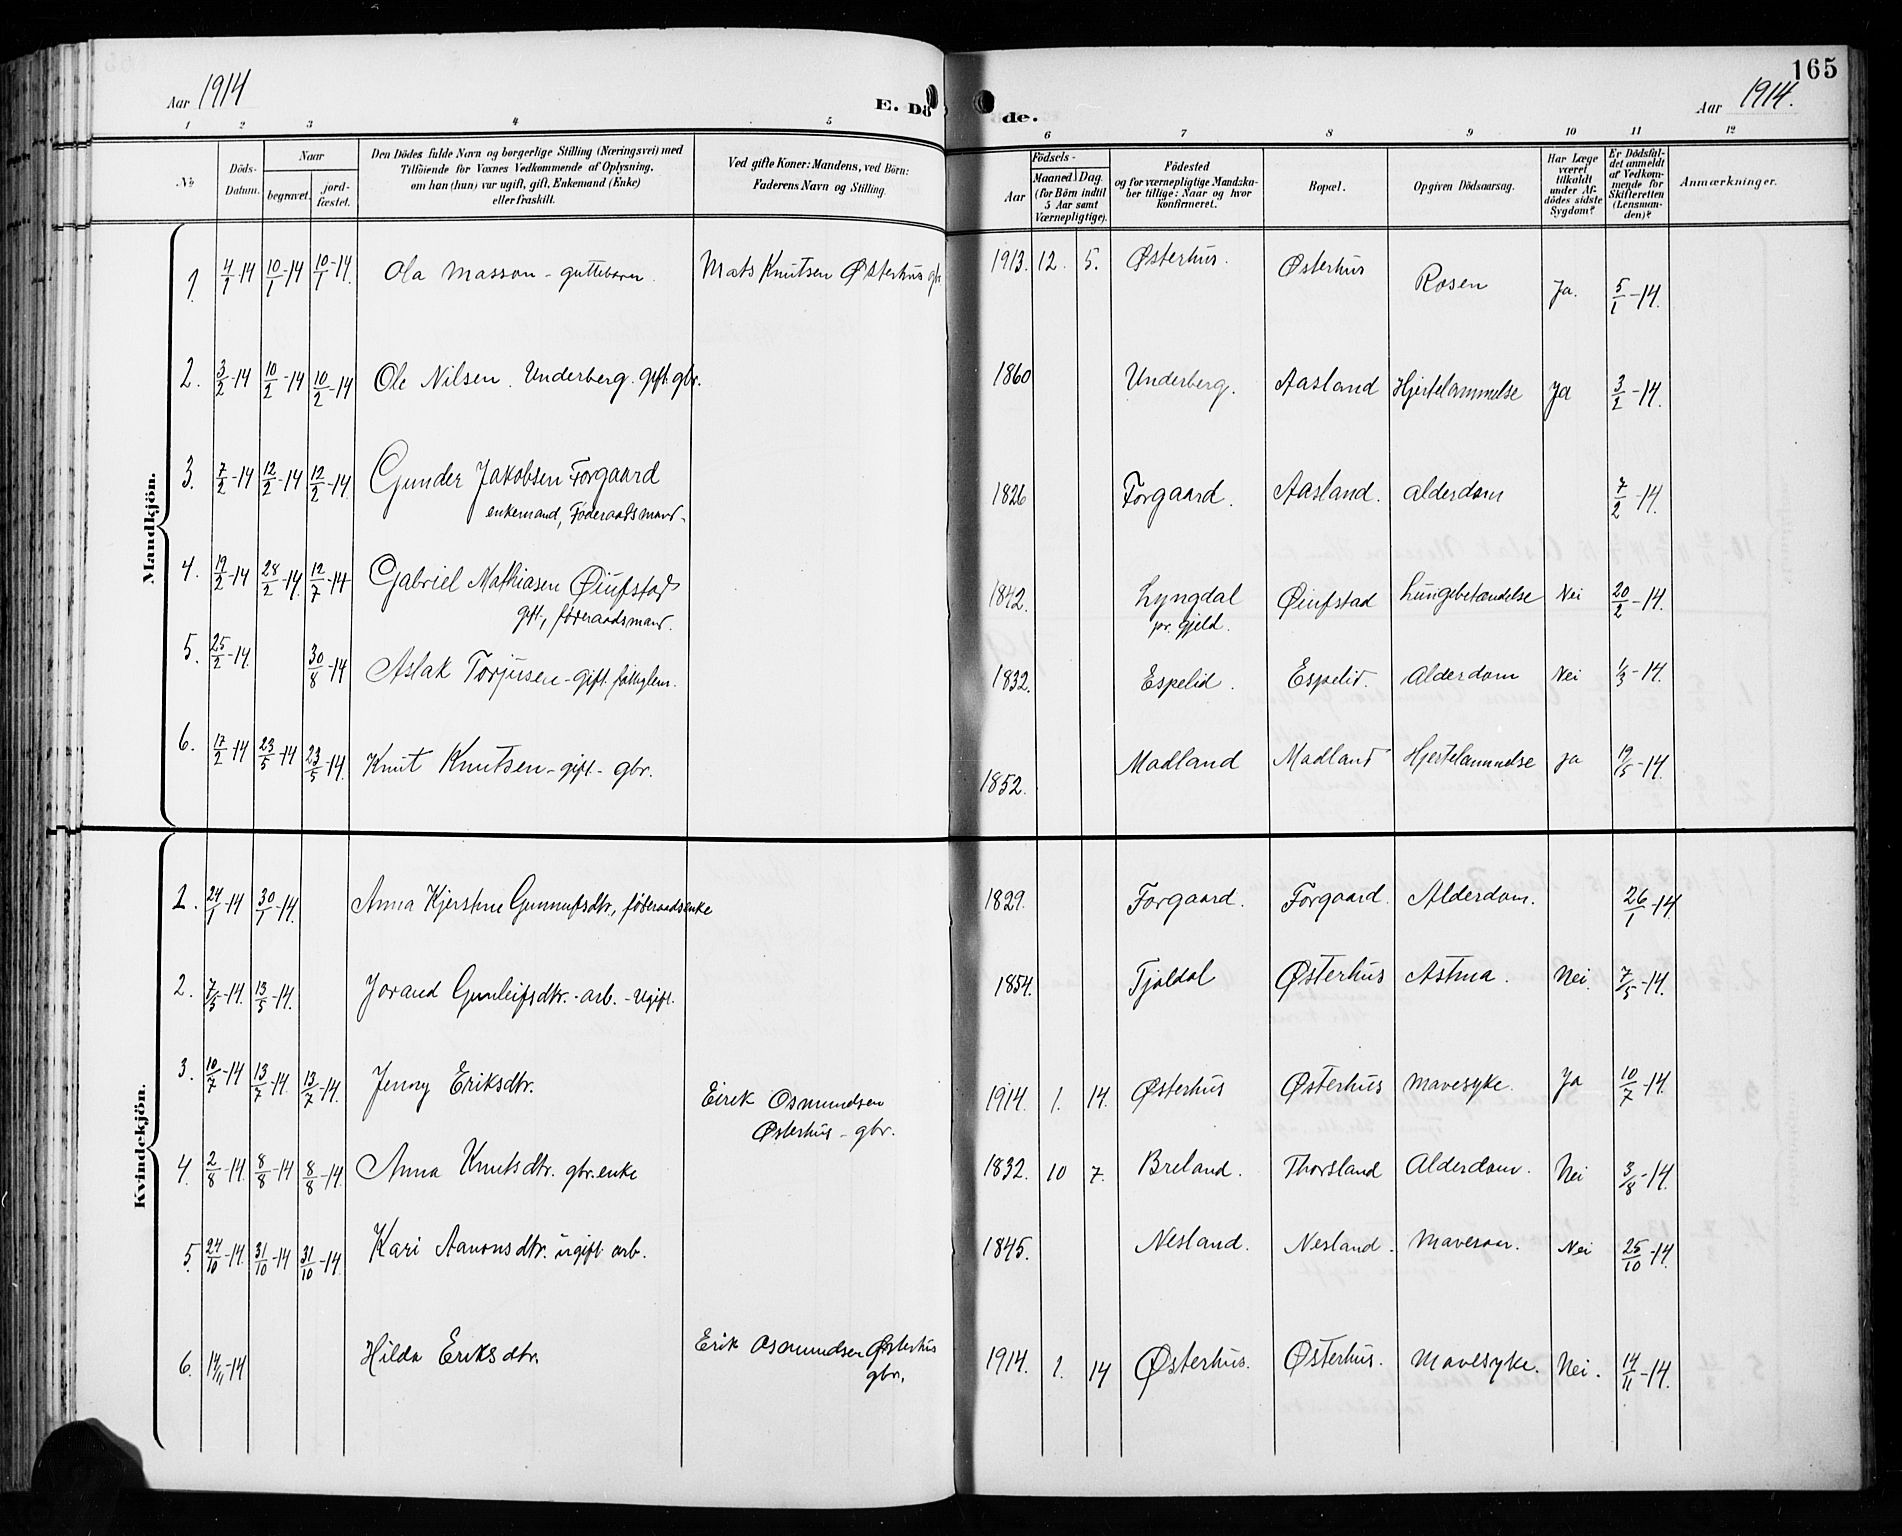 165
Aar 1914 E. Döde. Aar 1914.
1 2 3 4 5 6 7 8 9 10 11 12
No Döds-Datum. Naar begravet. jordfæstet. Den Dödes fulde Navn og borgerlige Stilling (Næringsvei) med Tilföiende for Voxnes Vedkommende af Oplysning, om han (hun) var ugift, gift, Enkemand (Enke) eller fraskilt. Ved gifte Koner: Mandens, ved Börn: Faderens Navn og Stilling. Födsels- Aar Maaned Dag. (for Börn indtil 5 Aar samt Værnepligtige). Födested og for værnepligtige Mandskaber tillige: Naar og hvor Konfirmeret. Bopæl. Opgiven Dödsaarsag. Har Læge været tilkaldt under Afdödes sidste Sygdom? Er Dödsfaldet anmeldt af Vedkommende for Skifteretten (Lensmanden)? Anmærkninger.
Mandkjön.
1. 4/1-14 10/1-14 10/1-14. Ola Masson - guttebarn. Mats Knutsen Østerhus gbr 1913. 12. 5. Østerhus. Østerhus Rosen Ja. 5/1-14.
2. 3/2-14 10/2-14 10/2-14 Ole Nilsen Underberg. gift. gbr. 1860 Underberg. Aasland Hjertelammelse Ja 3/2-14.
3. 7/2-14 12/2-14 12/2-14. Gunder Jakobsen Forgaard 1826 Forgaard. Aasland. Alderdom 7/2-14.
enkemand, Føderaadsmand.
4. 19/2-14 28/2-14. 12/7-14 Gabriel Mathiasen Øiufstad 1842. Lyngdal Øiufstad Lungebetændelse Nei 20/2-14.
gift, føderaadsmand. pr. gjeld.
5. 25/2-14. 30/8-14 Aslak Torjusen - gift. 1832. Espelid. Espelid. Alderdom Nei 1/3-14.
6. 17/2-14 23/5-14 23/5-14. Knut Knutsen - gift - gbr. 1852. Madland Madland Hjertelammelse ja 19/5-14.
Kvindekjön.
1. 24/1-14 30/1-14. Anna Kjerstine Gunnufsdtr., føderaadsenke 1829. Forgaard. Forgaard. Alderdom. 26/1-14
2. 7/5-14. 13/5-14. Jorand Gunleifsdtr. - arb. - ugift. 1854. Tjaldal Østerhus Astma. Nei. 7/5-14.
3. 10/7-14 13/7-14. 13/7-14. Jenny Eriksdtr. Eirik Osmundsen 1914. 1. 14. Østerhus Østerhus Mavesyke. Ja 10/7-14.
Østerhus - gbr.
4. 2/8-14. 8/8-14 8/8-14. Anna Knutsdtr. gbr.enke 1832. 10 7. Breland. Thorsland Alderdom. Nei 3/8-14.
5. 24/10-14. 31/10-14 31/10-14. Kari Aanonsdtr. ugift arb. 1845. Nesland. Nesland. Mavesaar. Nei 25/10-14.
6. 14/11-14 Hilda Eriksdtr. Erik Osmundsen Østerhus 1914. 1. 14 Østerhus. Østerhus. Mavesyke. Nei. 14/11-14.
gbr.